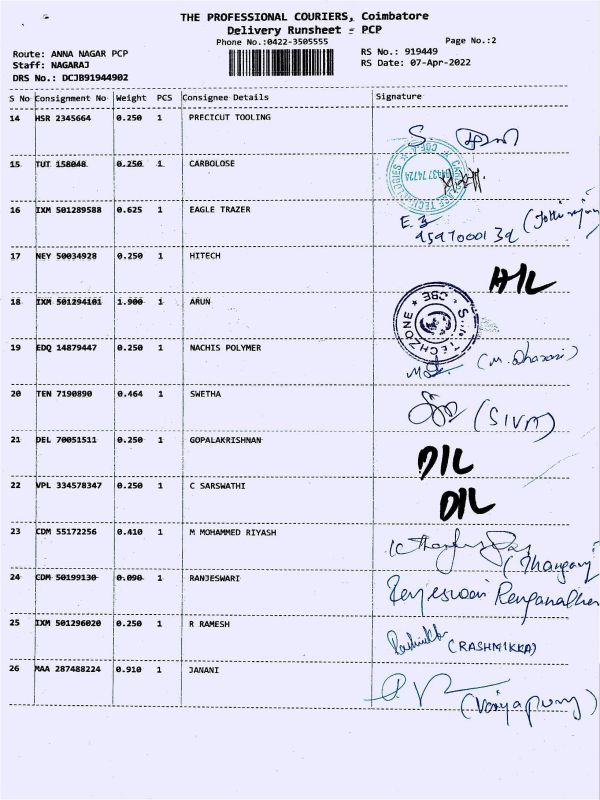 THE PROFESSIONAL COURIERS, Coimbatore
Delivery Runsheet - PCP
Phone No.:0422-3505555
Page No.:2
Route: ANNA NAGAR PCP
RS No.: 919449
Staff: NAGARAJ
RS Date: 07-Apr-2022
DRS No.: DCJB91944902
S No Consignment No Weight PCS Consignee Details Signature
14 HSR 2345664 0.250 1 PRECICUT TOOLING
15 TUT 158048 0.250 1 CARBOLOSE
16 IXM 501289588 0.625 1 EAGLE TRAZER
9597000132
17 NEY 50034928 0.250 1 HITECH
18 IXM 501294101 1.900 1 ARUN
TECHZONE
CBE
19 EDQ 14879447 0.250 1 NACHIS POLYMER
20 TEN 7190890 0.464 1 SWETHA
(SIVA)
21 DEL 70051511 0.250 1 GOPALAKRISHNAN
DIL
22 VPL 334578347 0.250 1 C SARSWATHI
DIL
23 CDM 55172256 0.410 1 M MOHAMMED RIYASH
24 CDM 50199130 0.090 1 RANJESWARI
25 IXM 501296020 0.250 1 R RAMESH
(RASHMIKKA)
26 MAA 287488224 0.910 1 JANANI